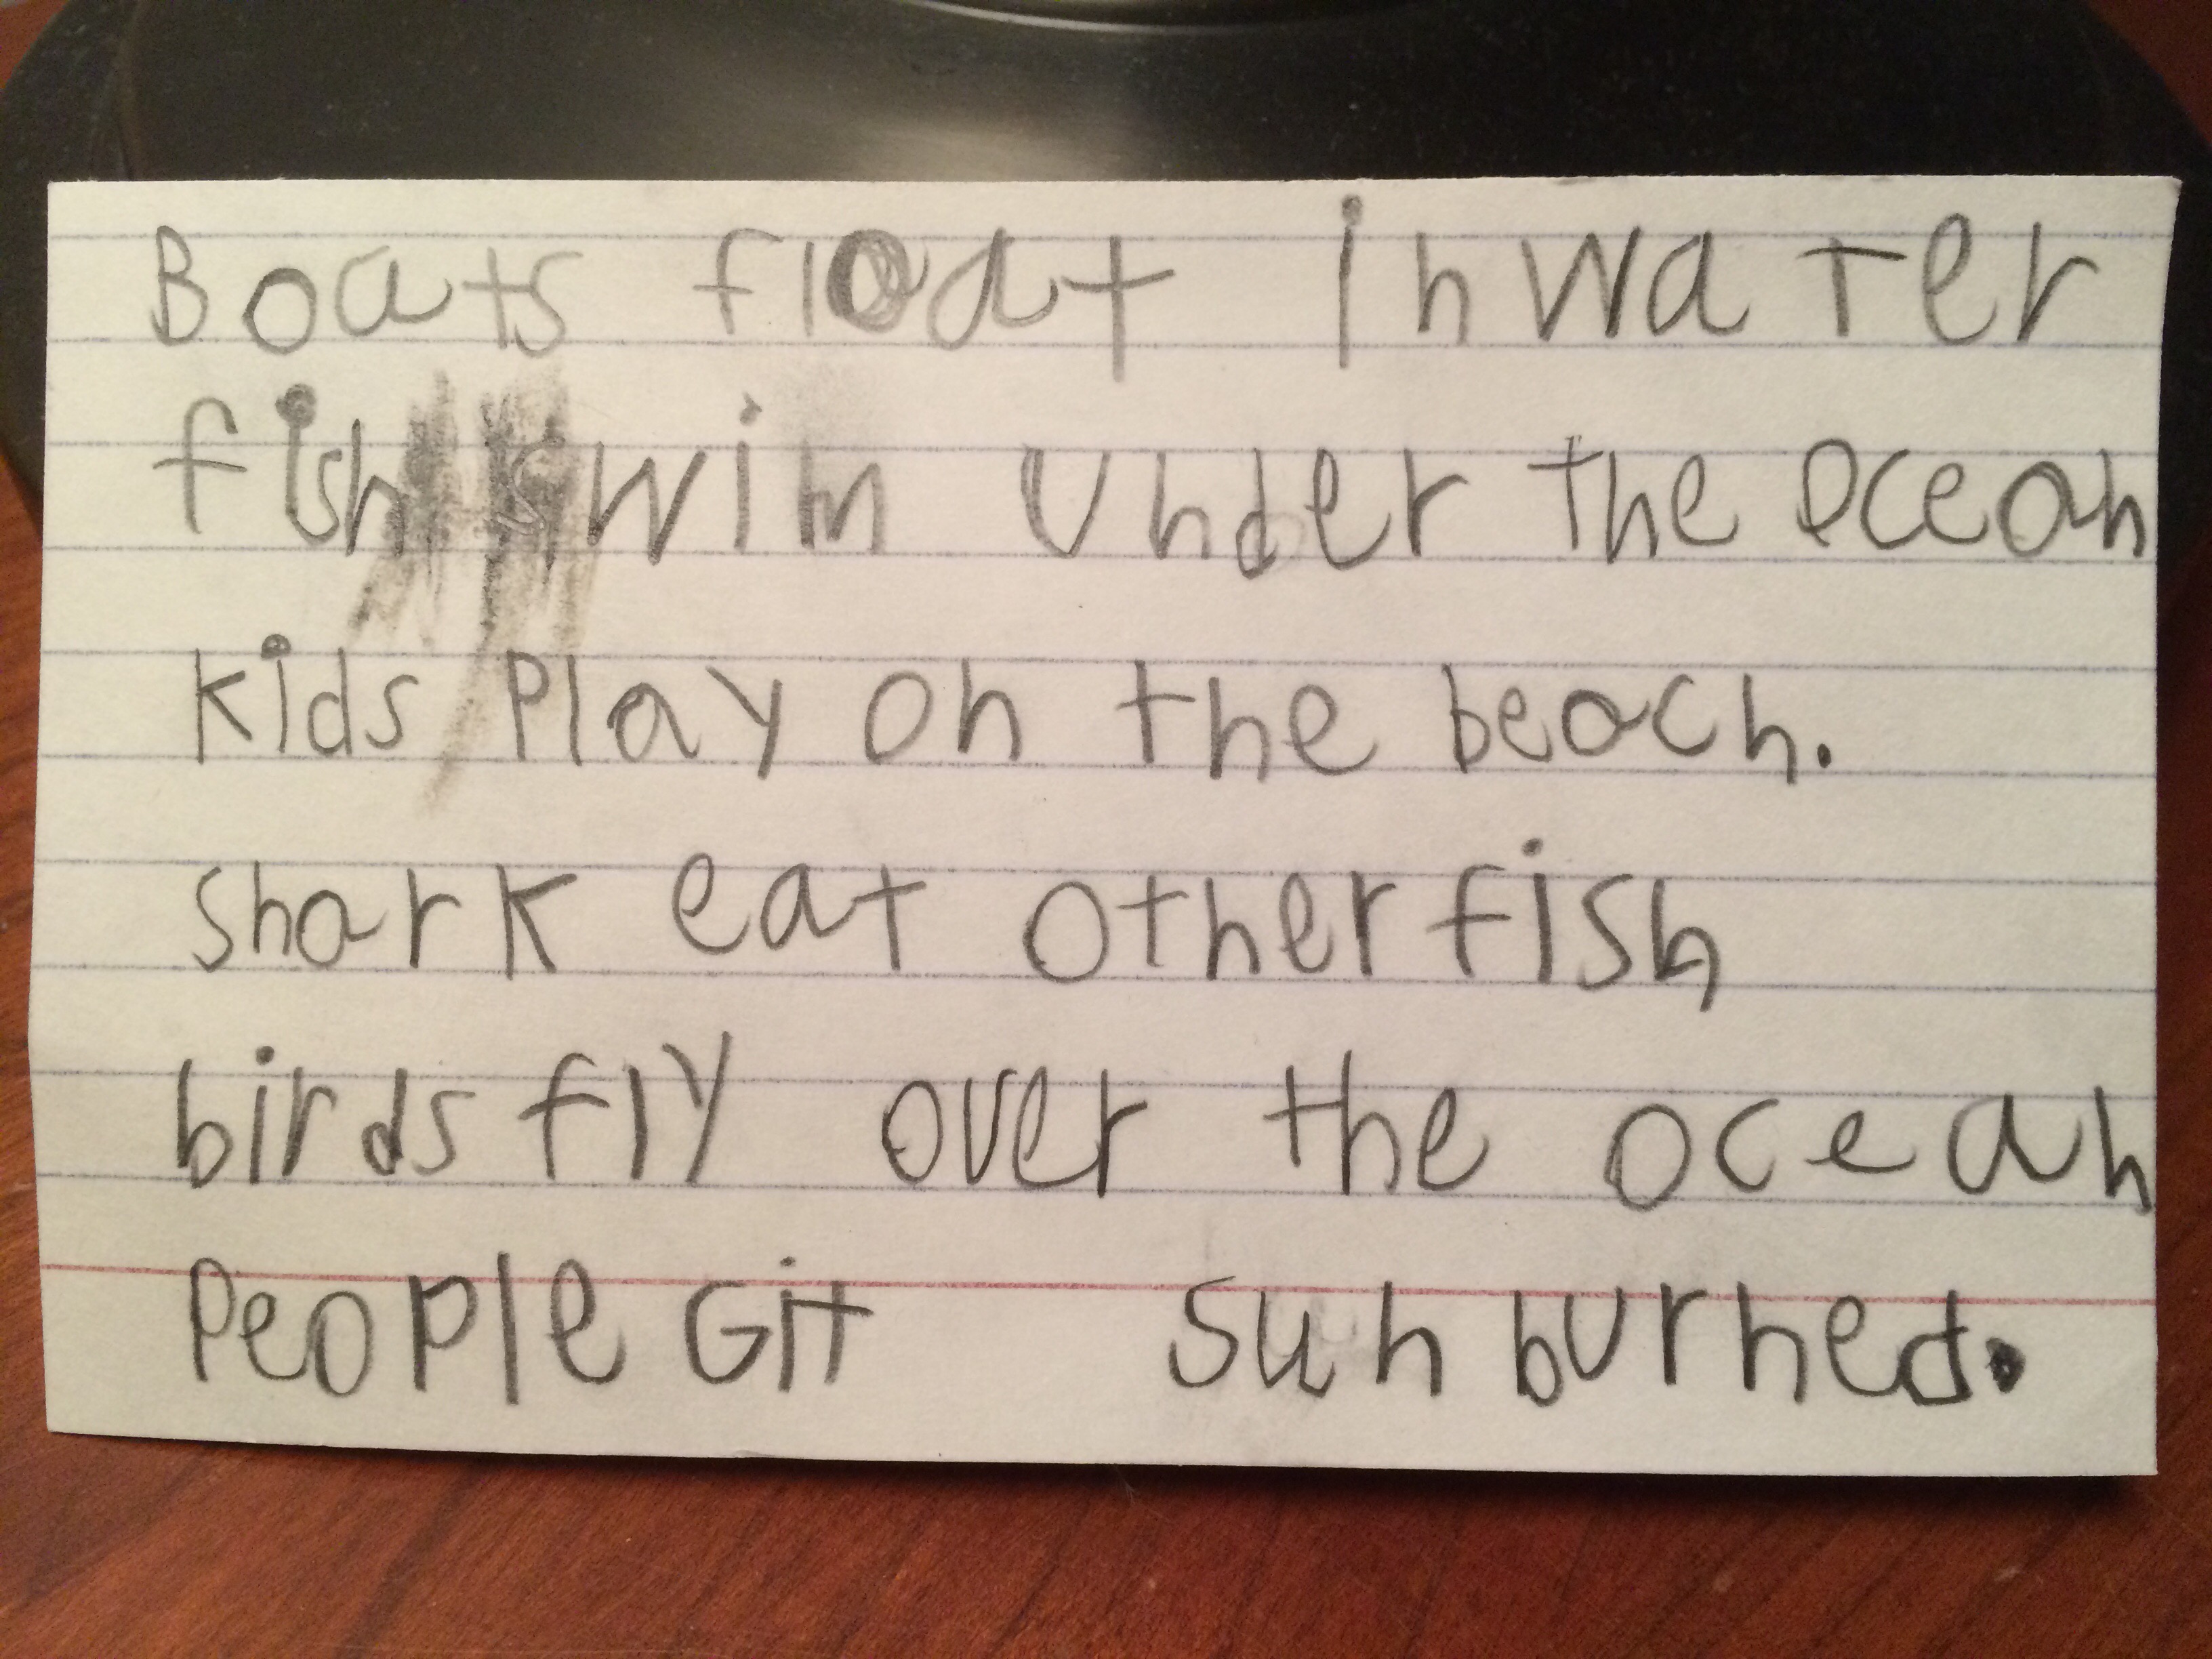 Boats float in water
fish swim under the ocean
kids play on the beach.
shark eat other fish
birds fly over the ocean
People Git sun burned.